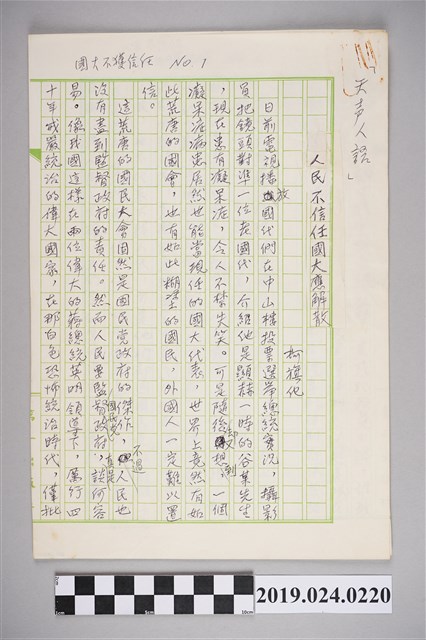 「天声人語」
國大不獲信任 NO 1
人民不信任國大應解散
柯旗化
日前電視播放國代們在中山樓投票選舉總統實況,攝影
員把鏡頭對準一位老國代,介紹他是顯赫一時的谷某先生
,現在患有癡呆症,令人不禁失笑。可是隨後卻又想到一個
癡呆症病患居然也能當現任的國大代表,世界上竟然有如
此荒唐的國會,也有如此糊塗的國民,外國人一定難以置
信。
這荒唐的國民大會固然是國民党政府的傑作,不過人民也
沒有盡到監督政府的責任。然而人民要監督國民党政府,真是談何容
易。像我國這樣在兩位偉大的蔣總統英明領導下,厲行四
十年戒嚴統治的偉大國家,在那白色恐怖統治時代,僅批
0
1cm
5cm
10cm
2019.024.0220